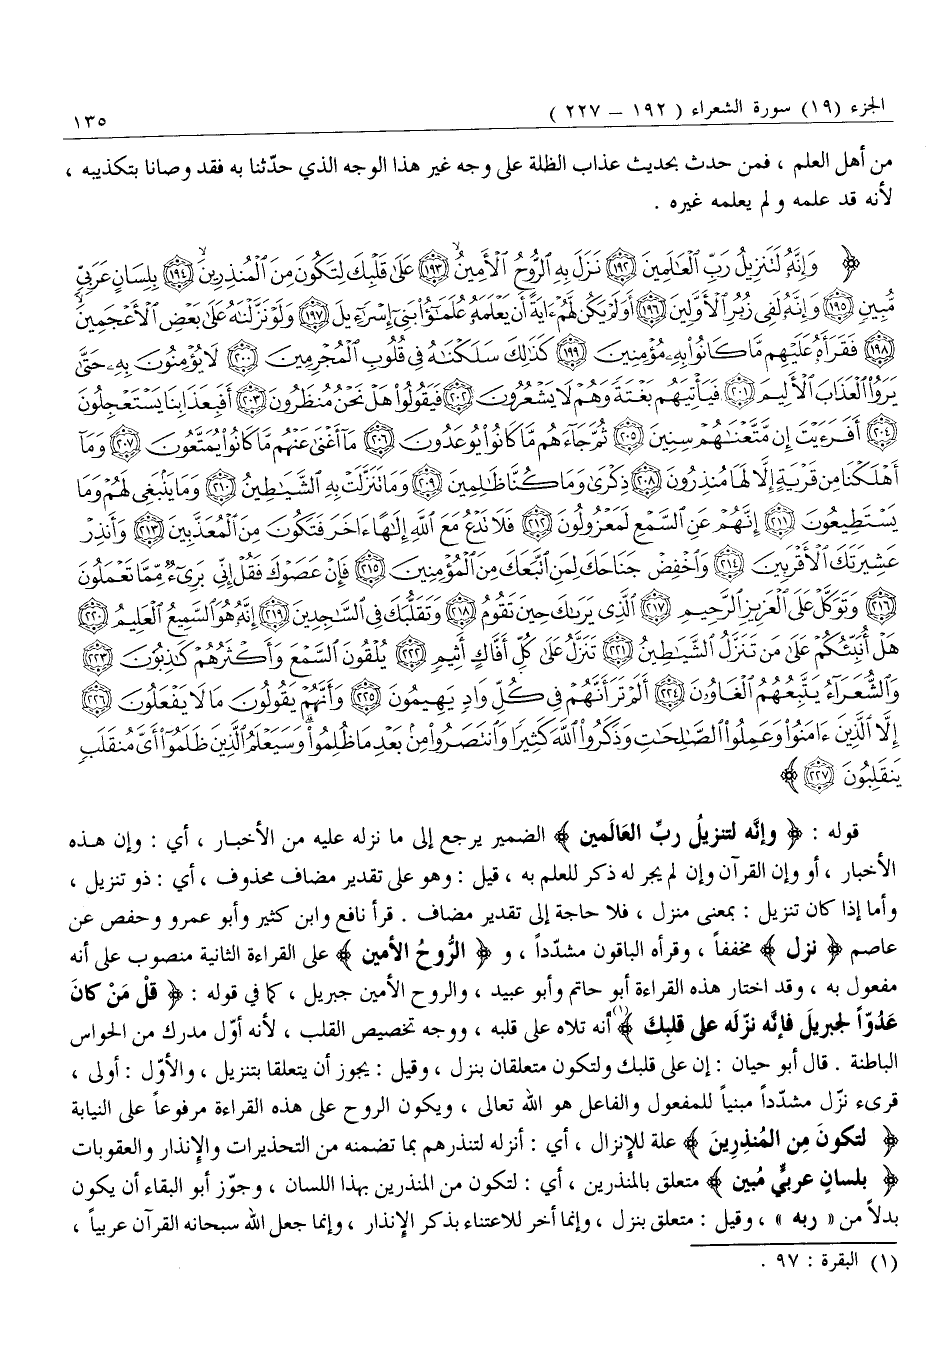 الجزء (١٩) سورة الشعراء ( ١٩٢ – ٢٢٧ ) ١٣٥
من أهل العلم ، فمن حدث بحديث عذاب الظلة على وجه غير هذا الوجه الذي حدّثنا به فقد وصانا بتكذيبه ،
لأنه قد علمه و لم يعلمه غيره .
﴿ وَإِنَّهُۥ لَتَنزِيلُ رَبِّ ٱلْعَٰلَمِينَ ١٩٢ نَزَلَ بِهِ ٱلرُّوحُ ٱلْأَمِينُ ١٩٣ عَلَىٰ قَلْبِكَ لِتَكُونَ مِنَ ٱلْمُنذِرِينَ ١٩٤ بِلِسَانٍ عَرَبِيٍّ
مُّبِينٍ ١٩٥ وَإِنَّهُۥ لَفِى زُبُرِ ٱلْأَوَّلِينَ ١٩٦ أَوَلَمْ يَكُن لَّهُمْ ءَايَةً أَن يَعْلَمَهُۥ عُلَمَٰٓؤُا۟ بَنِىٓ إِسْرَٰٓءِيلَ ١٩٧ وَلَوْ نَزَّلْنَٰهُ عَلَىٰ بَعْضِ ٱلْأَعْجَمِينَ
١٩٨ فَقَرَأَهُۥ عَلَيْهِم مَّا كَانُوا۟ بِهِۦ مُؤْمِنِينَ ١٩٩ كَذَٰلِكَ سَلَكْنَٰهُ فِى قُلُوبِ ٱلْمُجْرِمِينَ ٢٠٠ لَا يُؤْمِنُونَ بِهِۦ حَتَّىٰ
يَرَوُا۟ ٱلْعَذَابَ ٱلْأَلِيمَ ٢٠١ فَيَأْتِيَهُم بَغْتَةً وَهُمْ لَا يَشْعُرُونَ ٢٠٢ فَيَقُولُوا۟ هَلْ نَحْنُ مُنظَرُونَ ٢٠٣ أَفَبِعَذَابِنَا يَسْتَعْجِلُونَ
٢٠٤ أَفَرَءَيْتَ إِن مَّتَّعْنَٰهُمْ سِنِينَ ٢٠٥ ثُمَّ جَآءَهُم مَّا كَانُوا۟ يُوعَدُونَ ٢٠٦ مَآ أَغْنَىٰ عَنْهُم مَّا كَانُوا۟ يُمَتَّعُونَ ٢٠٧ وَمَآ
أَهْلَكْنَا مِن قَرْيَةٍ إِلَّا لَهَا مُنذِرُونَ ٢٠٨ ذِكْرَىٰ وَمَا كُنَّا ظَٰلِمِينَ ٢٠٩ وَمَا تَنَزَّلَتْ بِهِ ٱلشَّيَٰطِينُ ٢١٠ وَمَا يَنۢبَغِى لَهُمْ وَمَا
يَسْتَطِيعُونَ ٢١١ إِنَّهُمْ عَنِ ٱلسَّمْعِ لَمَعْزُولُونَ ٢١٢ فَلَا تَدْعُ مَعَ ٱللَّهِ إِلَٰهًا ءَاخَرَ فَتَكُونَ مِنَ ٱلْمُعَذَّبِينَ ٢١٣ وَأَنذِرْ
عَشِيرَتَكَ ٱلْأَقْرَبِينَ ٢١٤ وَٱخْفِضْ جَنَاحَكَ لِمَنِ ٱتَّبَعَكَ مِنَ ٱلْمُؤْمِنِينَ ٢١٥ فَإِنْ عَصَوْكَ فَقُلْ إِنِّى بَرِىٓءٌ مِّمَّا تَعْمَلُونَ
٢١٦ وَتَوَكَّلْ عَلَى ٱلْعَزِيزِ ٱلرَّحِيمِ ٢١٧ ٱلَّذِى يَرَىٰكَ حِينَ تَقُومُ ٢١٨ وَتَقَلُّبَكَ فِى ٱلسَّٰجِدِينَ ٢١٩ إِنَّهُۥ هُوَ ٱلسَّمِيعُ ٱلْعَلِيمُ ٢٢٠
هَلْ أُنَبِّئُكُمْ عَلَىٰ مَن تَنَزَّلُ ٱلشَّيَٰطِينُ ٢٢١ تَنَزَّلُ عَلَىٰ كُلِّ أَفَّاكٍ أَثِيمٍ ٢٢٢ يُلْقُونَ ٱلسَّمْعَ وَأَكْثَرُهُمْ كَٰذِبُونَ ٢٢٣
وَٱلشُّعَرَآءُ يَتَّبِعُهُمُ ٱلْغَاوُۥنَ ٢٢٤ أَلَمْ تَرَ أَنَّهُمْ فِى كُلِّ وَادٍ يَهِيمُونَ ٢٢٥ وَأَنَّهُمْ يَقُولُونَ مَا لَا يَفْعَلُونَ ٢٢٦
إِلَّا ٱلَّذِينَ ءَامَنُوا۟ وَعَمِلُوا۟ ٱلصَّٰلِحَٰتِ وَذَكَرُوا۟ ٱللَّهَ كَثِيرًا وَٱنتَصَرُوا۟ مِنۢ بَعْدِ مَا ظُلِمُوا۟ وَسَيَعْلَمُ ٱلَّذِينَ ظَلَمُوٓا۟ أَىَّ مُنقَلَبٍ
يَنقَلِبُونَ ٢٢٧ ﴾
قوله : ﴿ وإنَّه لتنزيلُ ربِّ العَالَمين ﴾ الضمير يرجع إلى ما نزله عليه من الأخبـار ، أي : وإن هـذه
الأخبار ، أو وإن القرآن وإن لم يجر له ذكر للعلم به ، قيل : وهو على تقدير مضاف محذوف ، أي : ذو تنزيل ،
وأما إذا كان تنزيل : بمعنى منزل ، فلا حاجة إلى تقدير مضاف . قرأ نافع وابن كثير وأبو عمرو وحفص عن
عاصم ﴿ نزل ﴾ مخففاً ، وقرأه الباقون مشدّداً ، و ﴿ الرُّوحُ الأمين ﴾ على القراءة الثانية منصوب على أنه
مفعول به ، وقد اختار هذه القراءة أبو حاتم وأبو عبيد ، والروح الأمين جبريل ، كما في قوله : ﴿ قلْ مَنْ كانَ
عَدُوّاً لجبريلَ فإنَّه نزّلَه على قلبِكَ ﴾(١) أنه تلاه على قلبه ، ووجه تخصيص القلب ، لأنه أوّل مدرك من الحواس
الباطنة . قال أبو حيان : إن على قلبك ولتكون متعلقان بنزل ، وقيل : يجوز أن يتعلقا بتنزيل ، والأوّل : أولى ،
قرىء نزّل مشدّداً مبنياً للمفعول والفاعل هو الله تعالى ، ويكون الروح على هذه القراءة مرفوعاً على النيابة
﴿ لتكونَ مِن المُنذِرِينَ ﴾ علة للإنزال ، أي : أنزله لتنذرهم بما تضمنه من التحذيرات والإنذار والعقوبات
﴿ بلسانٍ عربيٍّ مُبين ﴾ متعلق بالمنذرين ، أي : لتكون من المنذرين بهذا اللسان ، وجوّز أبو البقاء أن يكون
بدلاً من « ربه » ، وقيل : متعلق بنزل ، وإنما أخر للاعتناء بذكر الإنذار ، وإنما جعل الله سبحانه القرآن عربياً ،
(١) البقرة : ٩٧ .